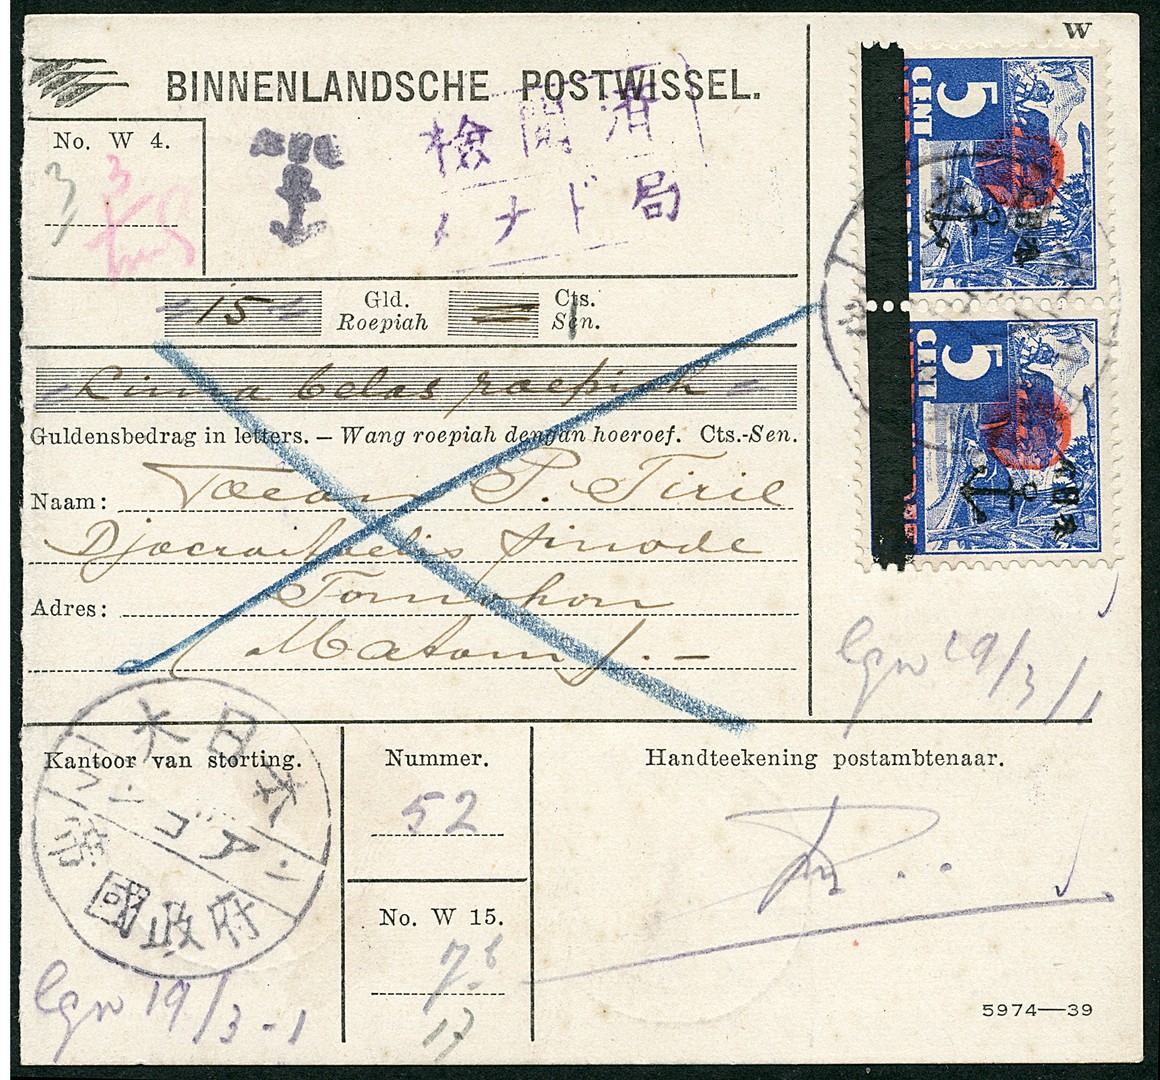 W
BINNENLANDSCHE POSTWISSEL.
No. W 4.
3
検閲済
メナド局
5 CENT
大日本
5 CENT
大日本
15 Gld. Roepiah — Cts. Sen.
Lima belas roepiah
Guldensbedrag in letters. — Wang roepiah dengan hoeroef. Cts.-Sen.
Naam: Toean P. Tirie
sinode
Adres: Tomohon
19/3/1
Kantoor van storting.
大日本
帝國政府
19/3-1
Nummer.
52
No. W 15.
7.8
13
Handteekening postambtenaar.
5974—39